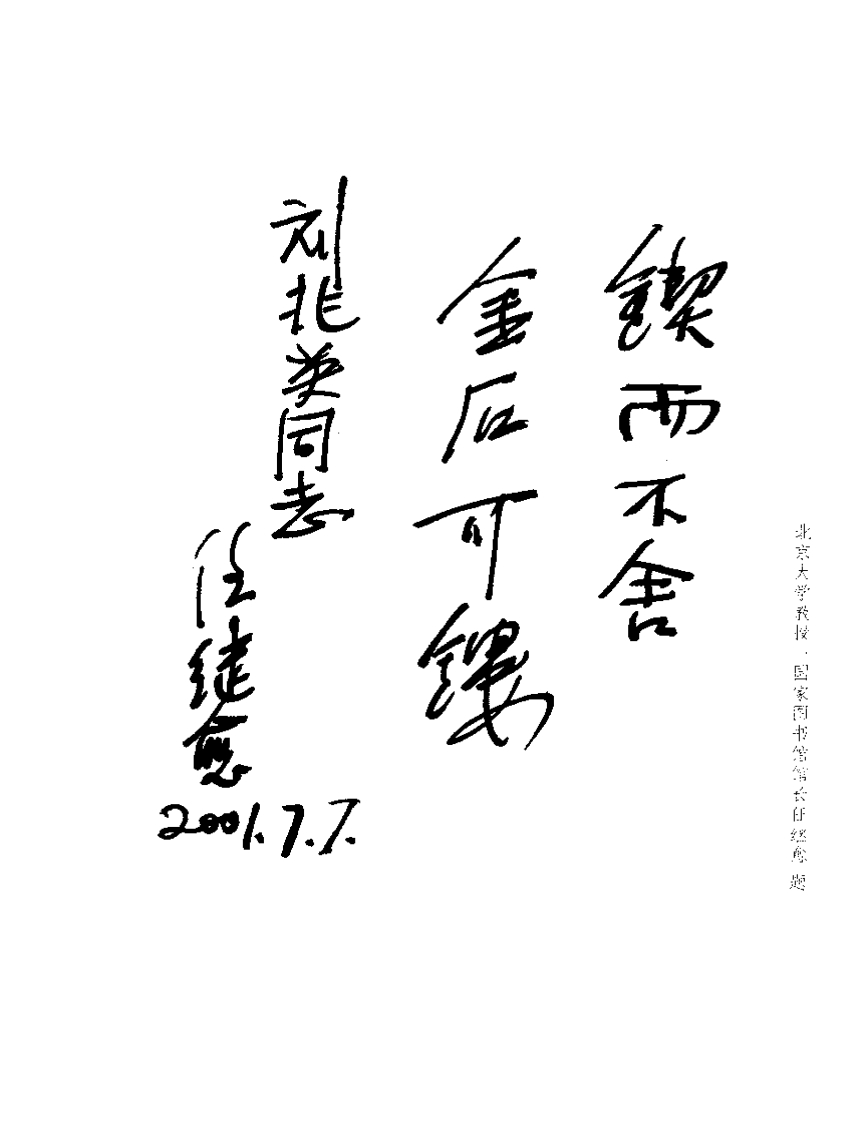 锲而不舍
金石可镂
刘兆英同志
任继愈
2001.7.7.
北京大学教授、国家图书馆馆长任继愈题